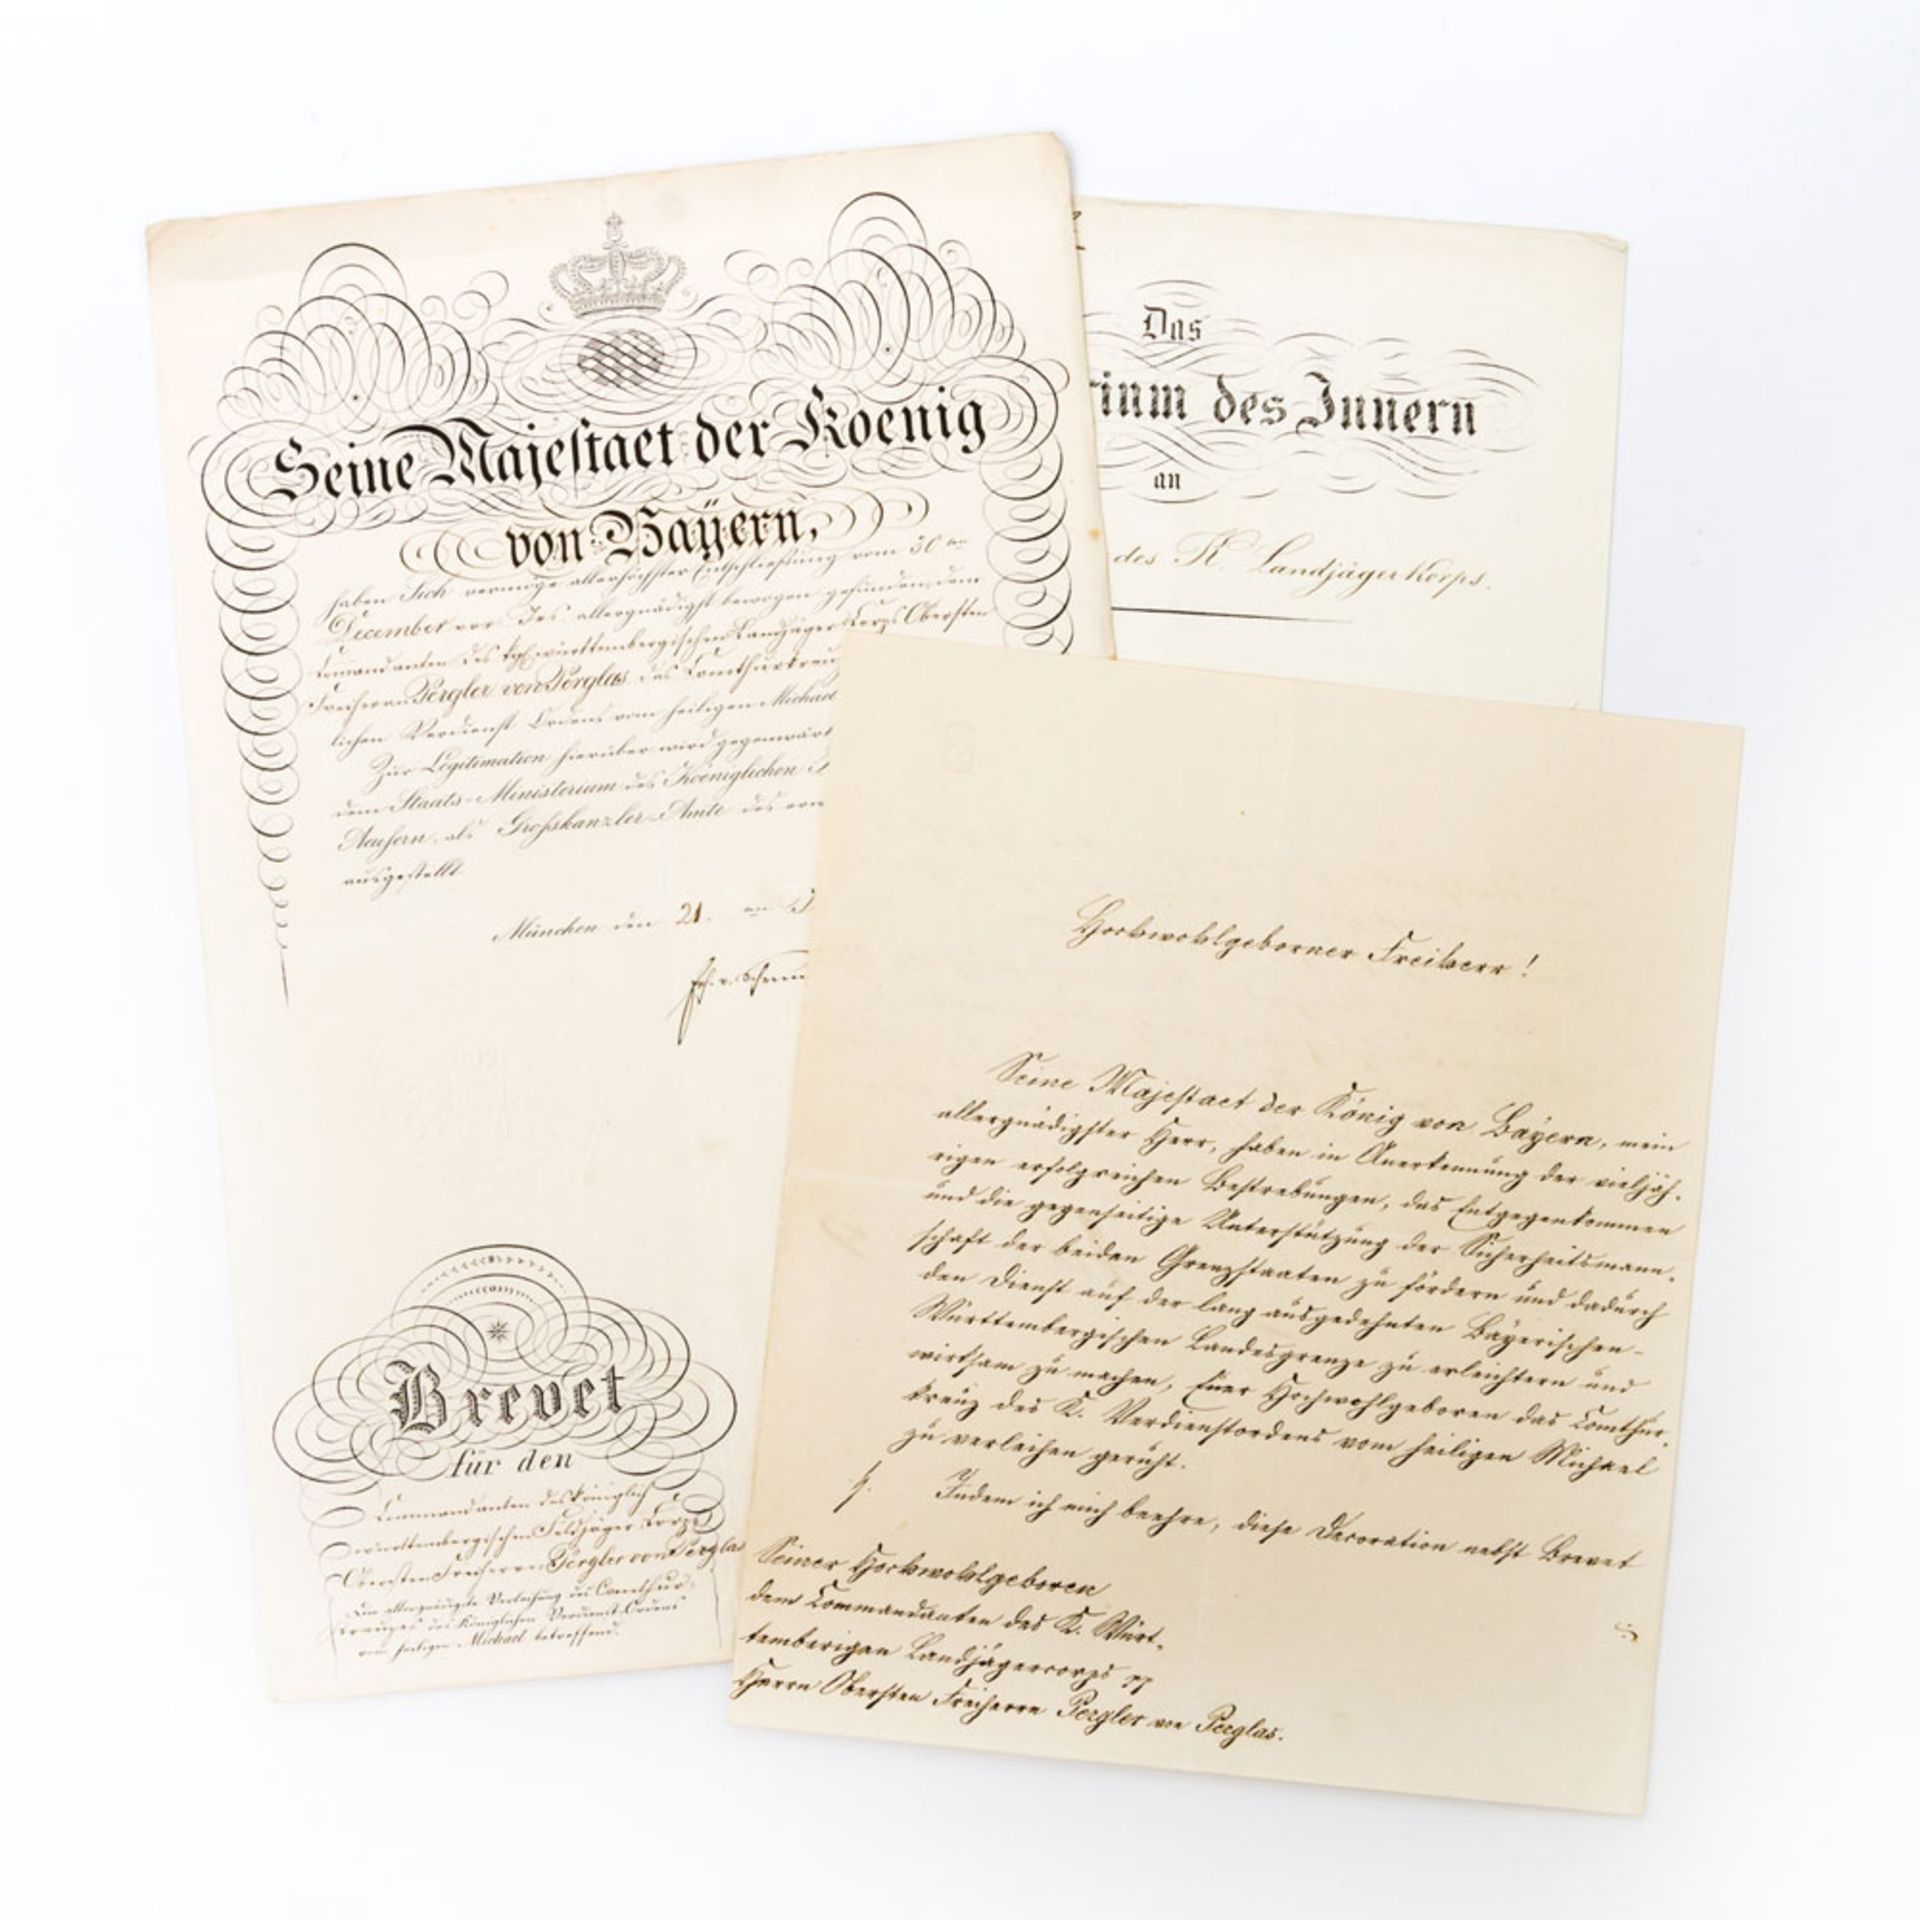 Seine Majestaet der Koenig
von Baÿern,
haben Sich vermöge allerhöchster Entschließung vom 30ten
December vor. Jrs allergnädigst bewogen gefunden, dem
Commandanten des kgl. württembergischen Landjäger Corps Obersten
Freiherrn Pergler von Perglas das Comthurkreu
lichen Verdienst Ordens vom heiligen Michael
Zur Legitimation hierüber wird gegenwärt
dem Staats-Ministerium des Koeniglichen
Aeußern, als Großkanzler-Amte des
ausgestellt.
München den 21. 
Brevet
für den
Commandanten des königlich
württembergischen Feldjäger Corps
Obersten Freiherrn Pergler von Perglas
die allergnädigste Verleihung des Comthur-
kreuzes des Königlichen Verdienst-Ordens
vom heiligen Michael betreffend.
Das
rium des Innern
an
des K. Landjäger Korps.
Hochwohlgeborner Freiherr!
Seine Majestaet der König von Bayern, mein
allergnädigster Herr, haben in Anerkennung der vieljäh-
rigen erfolgreichen Bestrebungen, das Entgegenkommen
und die gegenseitige Unterstützung der Sicherheitsmann-
schaft der beiden Grenzstaaten zu fördern und dadurch
den Dienst auf der lang ausgedehnten Bayerischen-
Württembergischen Landesgrenze zu erleichtern und
wirksam zu machen, Euer Hochwohlgeboren das Comthur-
kreuz des K. Verdienstordens vom heiligen Michael
zu verleihen geruht.
Indem ich mich beehre, diese Decoration nebst Brevet
Seiner Hochwohlgeboren
dem Commandanten des K. Würt-
tembergischen Landjägercorps
Herrn Obersten Freiherrn Pergler von Perglas.